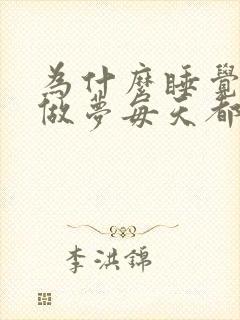 為什麼睡覺
做夢每天都
李洪錦